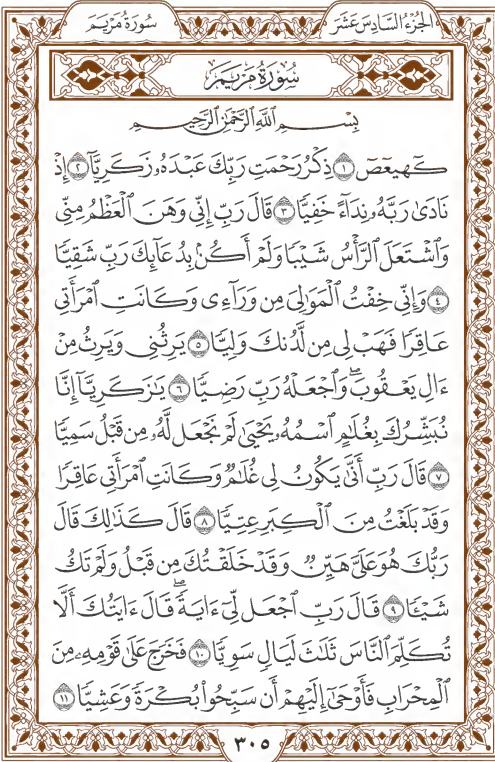 سُورَةُ مَرۡيَمَ
الجُزۡءُ السَّادِسَ عَشَرَ
سُورَةُ مَرۡيَمَ
بِسۡمِ ٱللَّهِ ٱلرَّحۡمَٰنِ ٱلرَّحِيمِ
كٓهيعٓصٓ ١ ذِكۡرُ رَحۡمَتِ رَبِّكَ عَبۡدَهُۥ زَكَرِيَّآ ٢ إِذۡ
نَادَىٰ رَبَّهُۥ نِدَآءً خَفِيّٗا ٣ قَالَ رَبِّ إِنِّي وَهَنَ ٱلۡعَظۡمُ مِنِّي
وَٱشۡتَعَلَ ٱلرَّأۡسُ شَيۡبٗا وَلَمۡ أَكُنۢ بِدُعَآئِكَ رَبِّ شَقِيّٗا
٤ وَإِنِّي خِفۡتُ ٱلۡمَوَٰلِيَ مِن وَرَآءِي وَكَانَتِ ٱمۡرَأَتِي
عَاقِرٗا فَهَبۡ لِي مِن لَّدُنكَ وَلِيّٗا ٥ يَرِثُنِي وَيَرِثُ مِنۡ
ءَالِ يَعۡقُوبَۖ وَٱجۡعَلۡهُ رَبِّ رَضِيّٗا ٦ يَٰزَكَرِيَّآ إِنَّا
نُبَشِّرُكَ بِغُلَٰمٍ ٱسۡمُهُۥ يَحۡيَىٰ لَمۡ نَجۡعَل لَّهُۥ مِن قَبۡلُ سَمِيّٗا
٧ قَالَ رَبِّ أَنَّىٰ يَكُونُ لِي غُلَٰمٞ وَكَانَتِ ٱمۡرَأَتِي عَاقِرٗا
وَقَدۡ بَلَغۡتُ مِنَ ٱلۡكِبَرِ عِتِيّٗا ٨ قَالَ كَذَٰلِكَ قَالَ
رَبُّكَ هُوَ عَلَيَّ هَيِّنٞ وَقَدۡ خَلَقۡتُكَ مِن قَبۡلُ وَلَمۡ تَكُ
شَيۡـٔٗا ٩ قَالَ رَبِّ ٱجۡعَل لِّيٓ ءَايَةٗۖ قَالَ ءَايَتُكَ أَلَّا
تُكَلِّمَ ٱلنَّاسَ ثَلَٰثَ لَيَالٖ سَوِيّٗا ١٠ فَخَرَجَ عَلَىٰ قَوۡمِهِۦ مِنَ
ٱلۡمِحۡرَابِ فَأَوۡحَىٰٓ إِلَيۡهِمۡ أَن سَبِّحُواْ بُكۡرَةٗ وَعَشِيّٗا ١١
٣٠٥